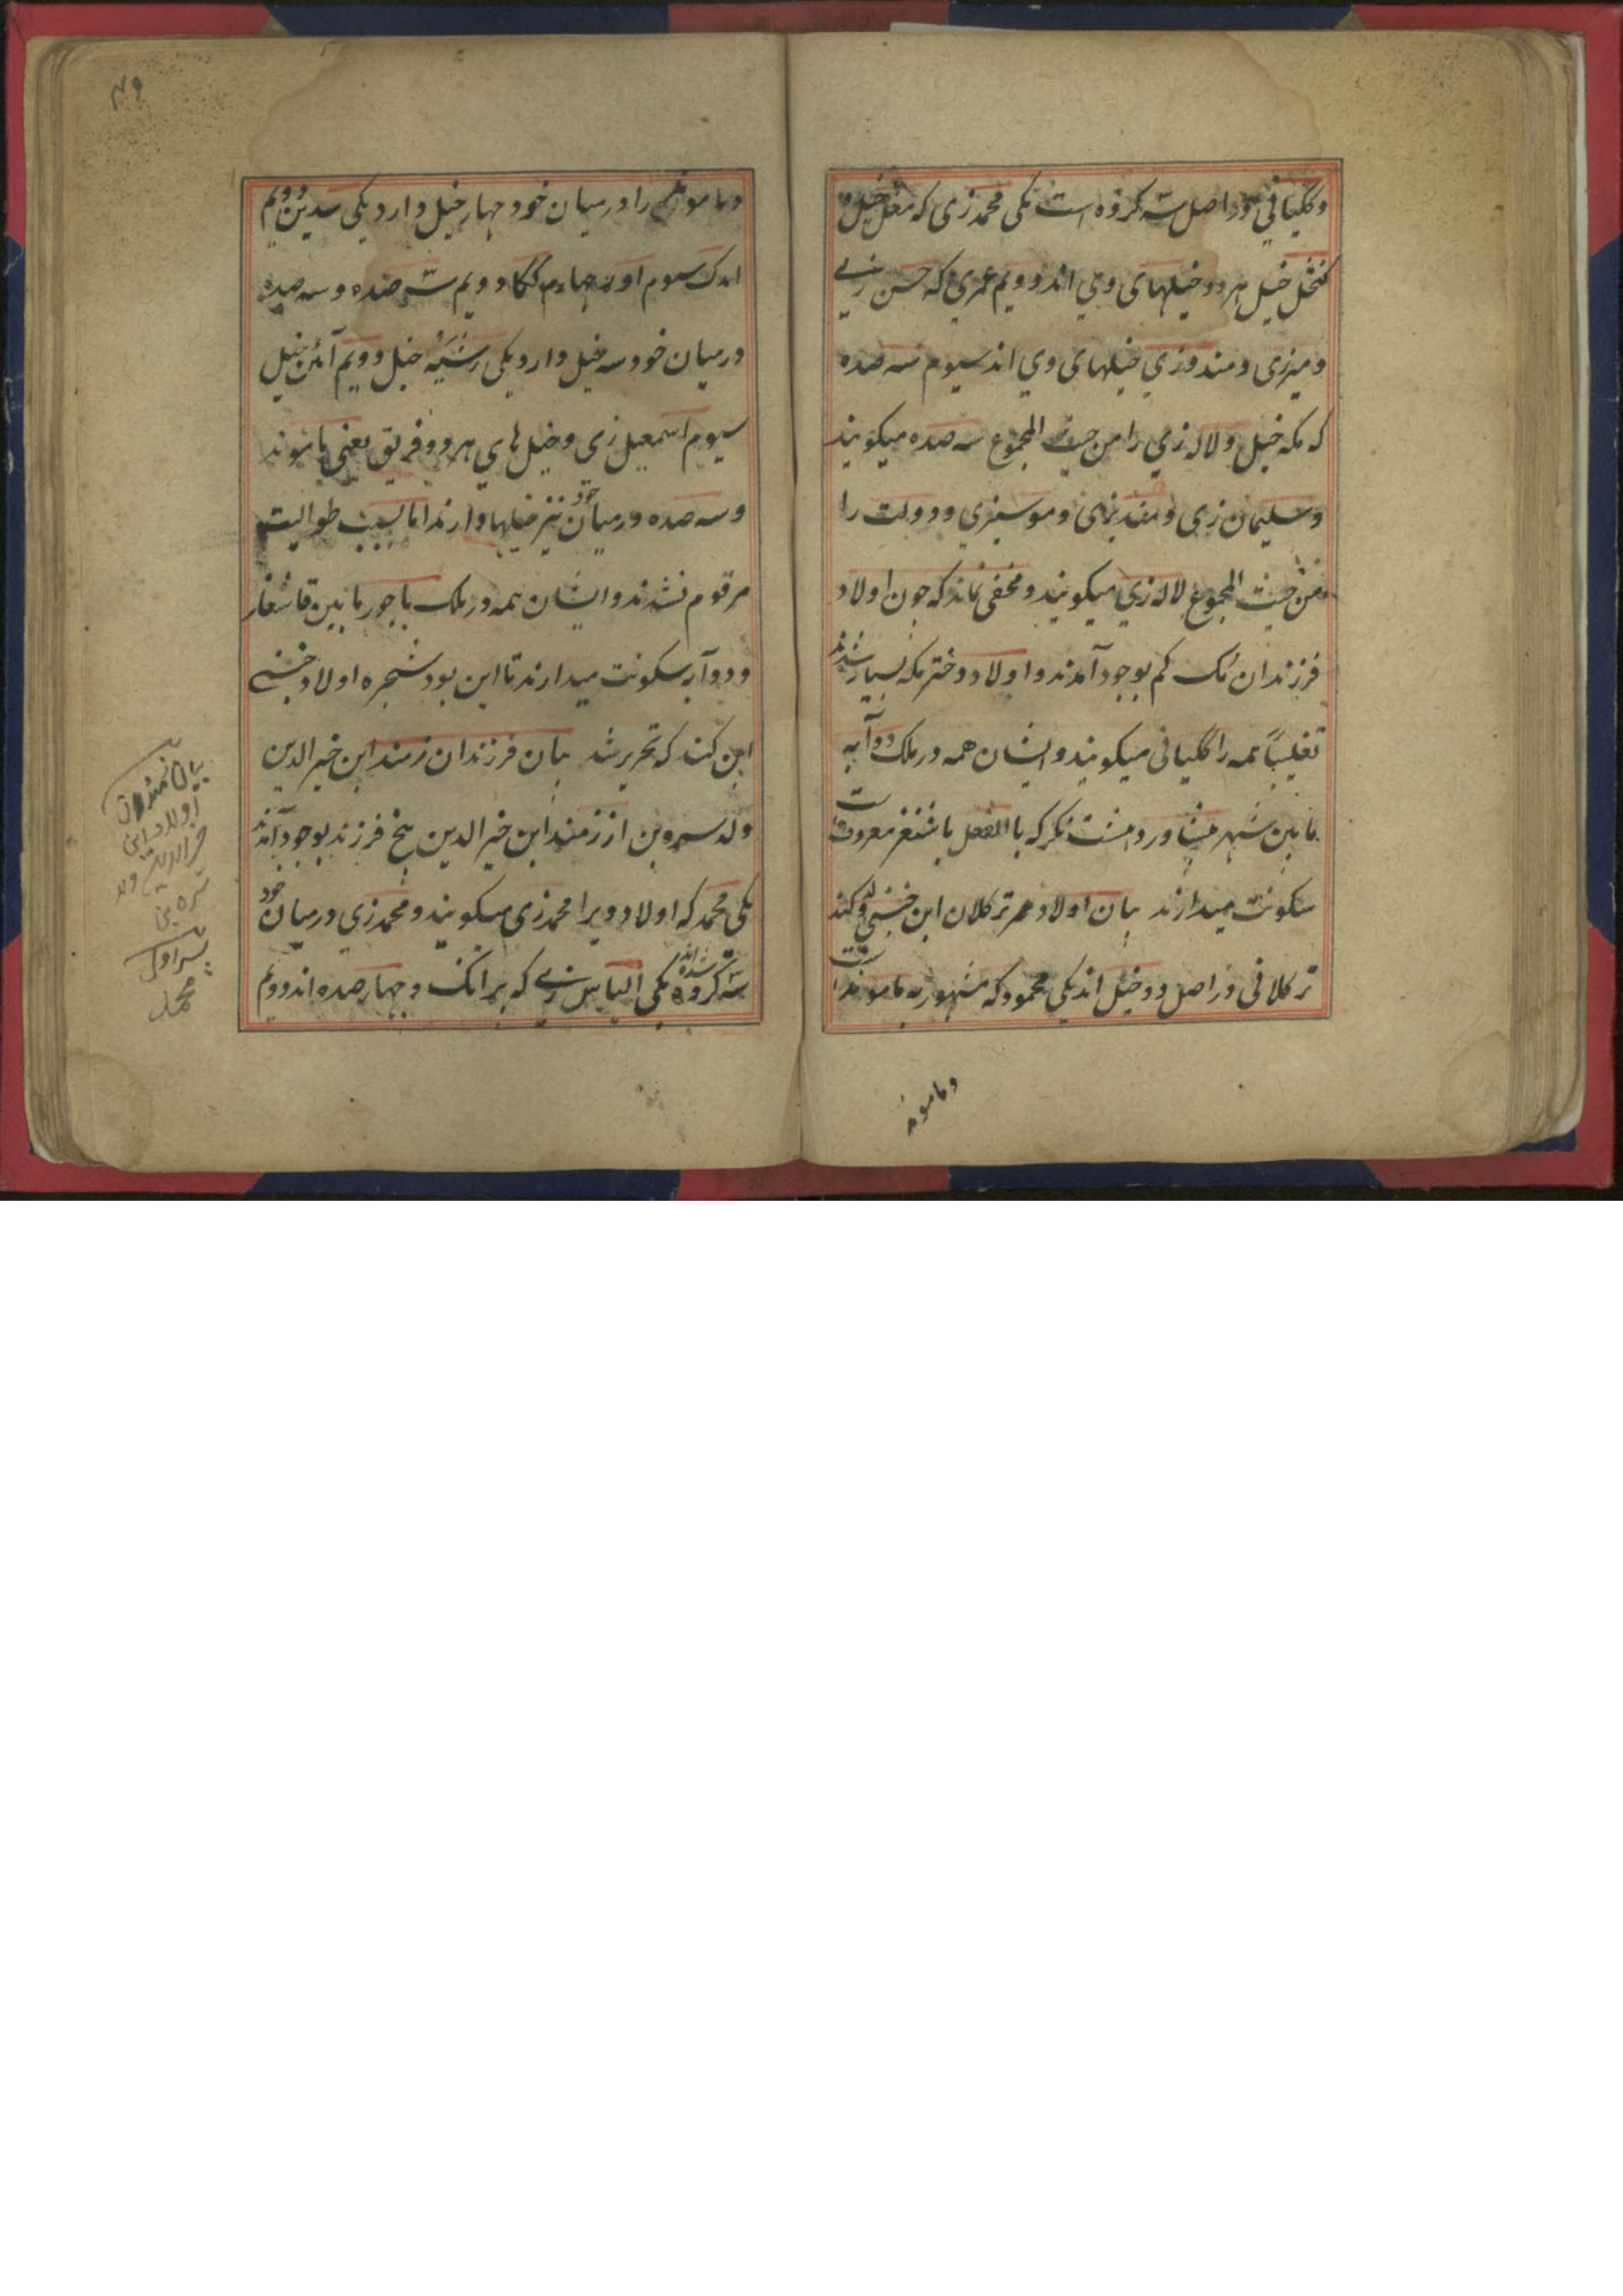 وگگیانی در اصل سه کروه است یکی محمدزی که مغل خیل و
خیل هر دو خیلهای وی اند دویم عمری که حسن زیی
و میرزی و مندوزی خیلهای وی اند سیوم سه صده
که مکه خیل ولاله زی را من حیث المجموع سه صده میکویند
و سلیمان زی و و موسیزی و دولت را
من حیث المجموع لاله زی میکویند و مخفی نماند که جون اولاد
فرزندان مک کم بوجود آمدند و اولاد دختر مکه بسیار شدند
تغلیباً همه را گگیانی میکویند و ایشان همه در ملک دوآبه
مابین شهر پشاور و هشت نکر که باالفعل باشنغر معروفست
سکونت میدارند بیان اولاد ترکلان ابن خښی ابن کند
ترکلانی در اصل دو خیل اند یکی محمود که مشهور به ماموند است
و ماموند
۴۹
و ماموند را در میان خود جهار خیل دارد یکی دویم
سیوم جهارم ککا و دویم سه صده و سه صده
در میان خود سه خیل دارد یکی خیل دویم خیل
سیوم اسمعیل زی و خیل های هر دو فریق یعنی ماموند
و سه صده در میان خود نیز خیلها دارند اما بسبب طوالیت
مرقوم نشدند و ایشان همه در ملک باجور مابین قاشغار
و دوآبه سکونت میدارند تا این بود شجره اولاد خښی
ابن کند که تحریر شد بیان فرزندان زمند ابن خیرالدین
ولد سروبن از زمند ابن خیرالدین پنج فرزند بوجود آمدند
یکی محمد که اولاد ویرا محمدزی میکویند و محمدزی در میان خود
سه کروه شده اند یکی الیاس زیی که برانک و جهار صده اند دویم
بیان
اولاد ابن
خیرالدین ولد
سره بن
پسر اول
محمد